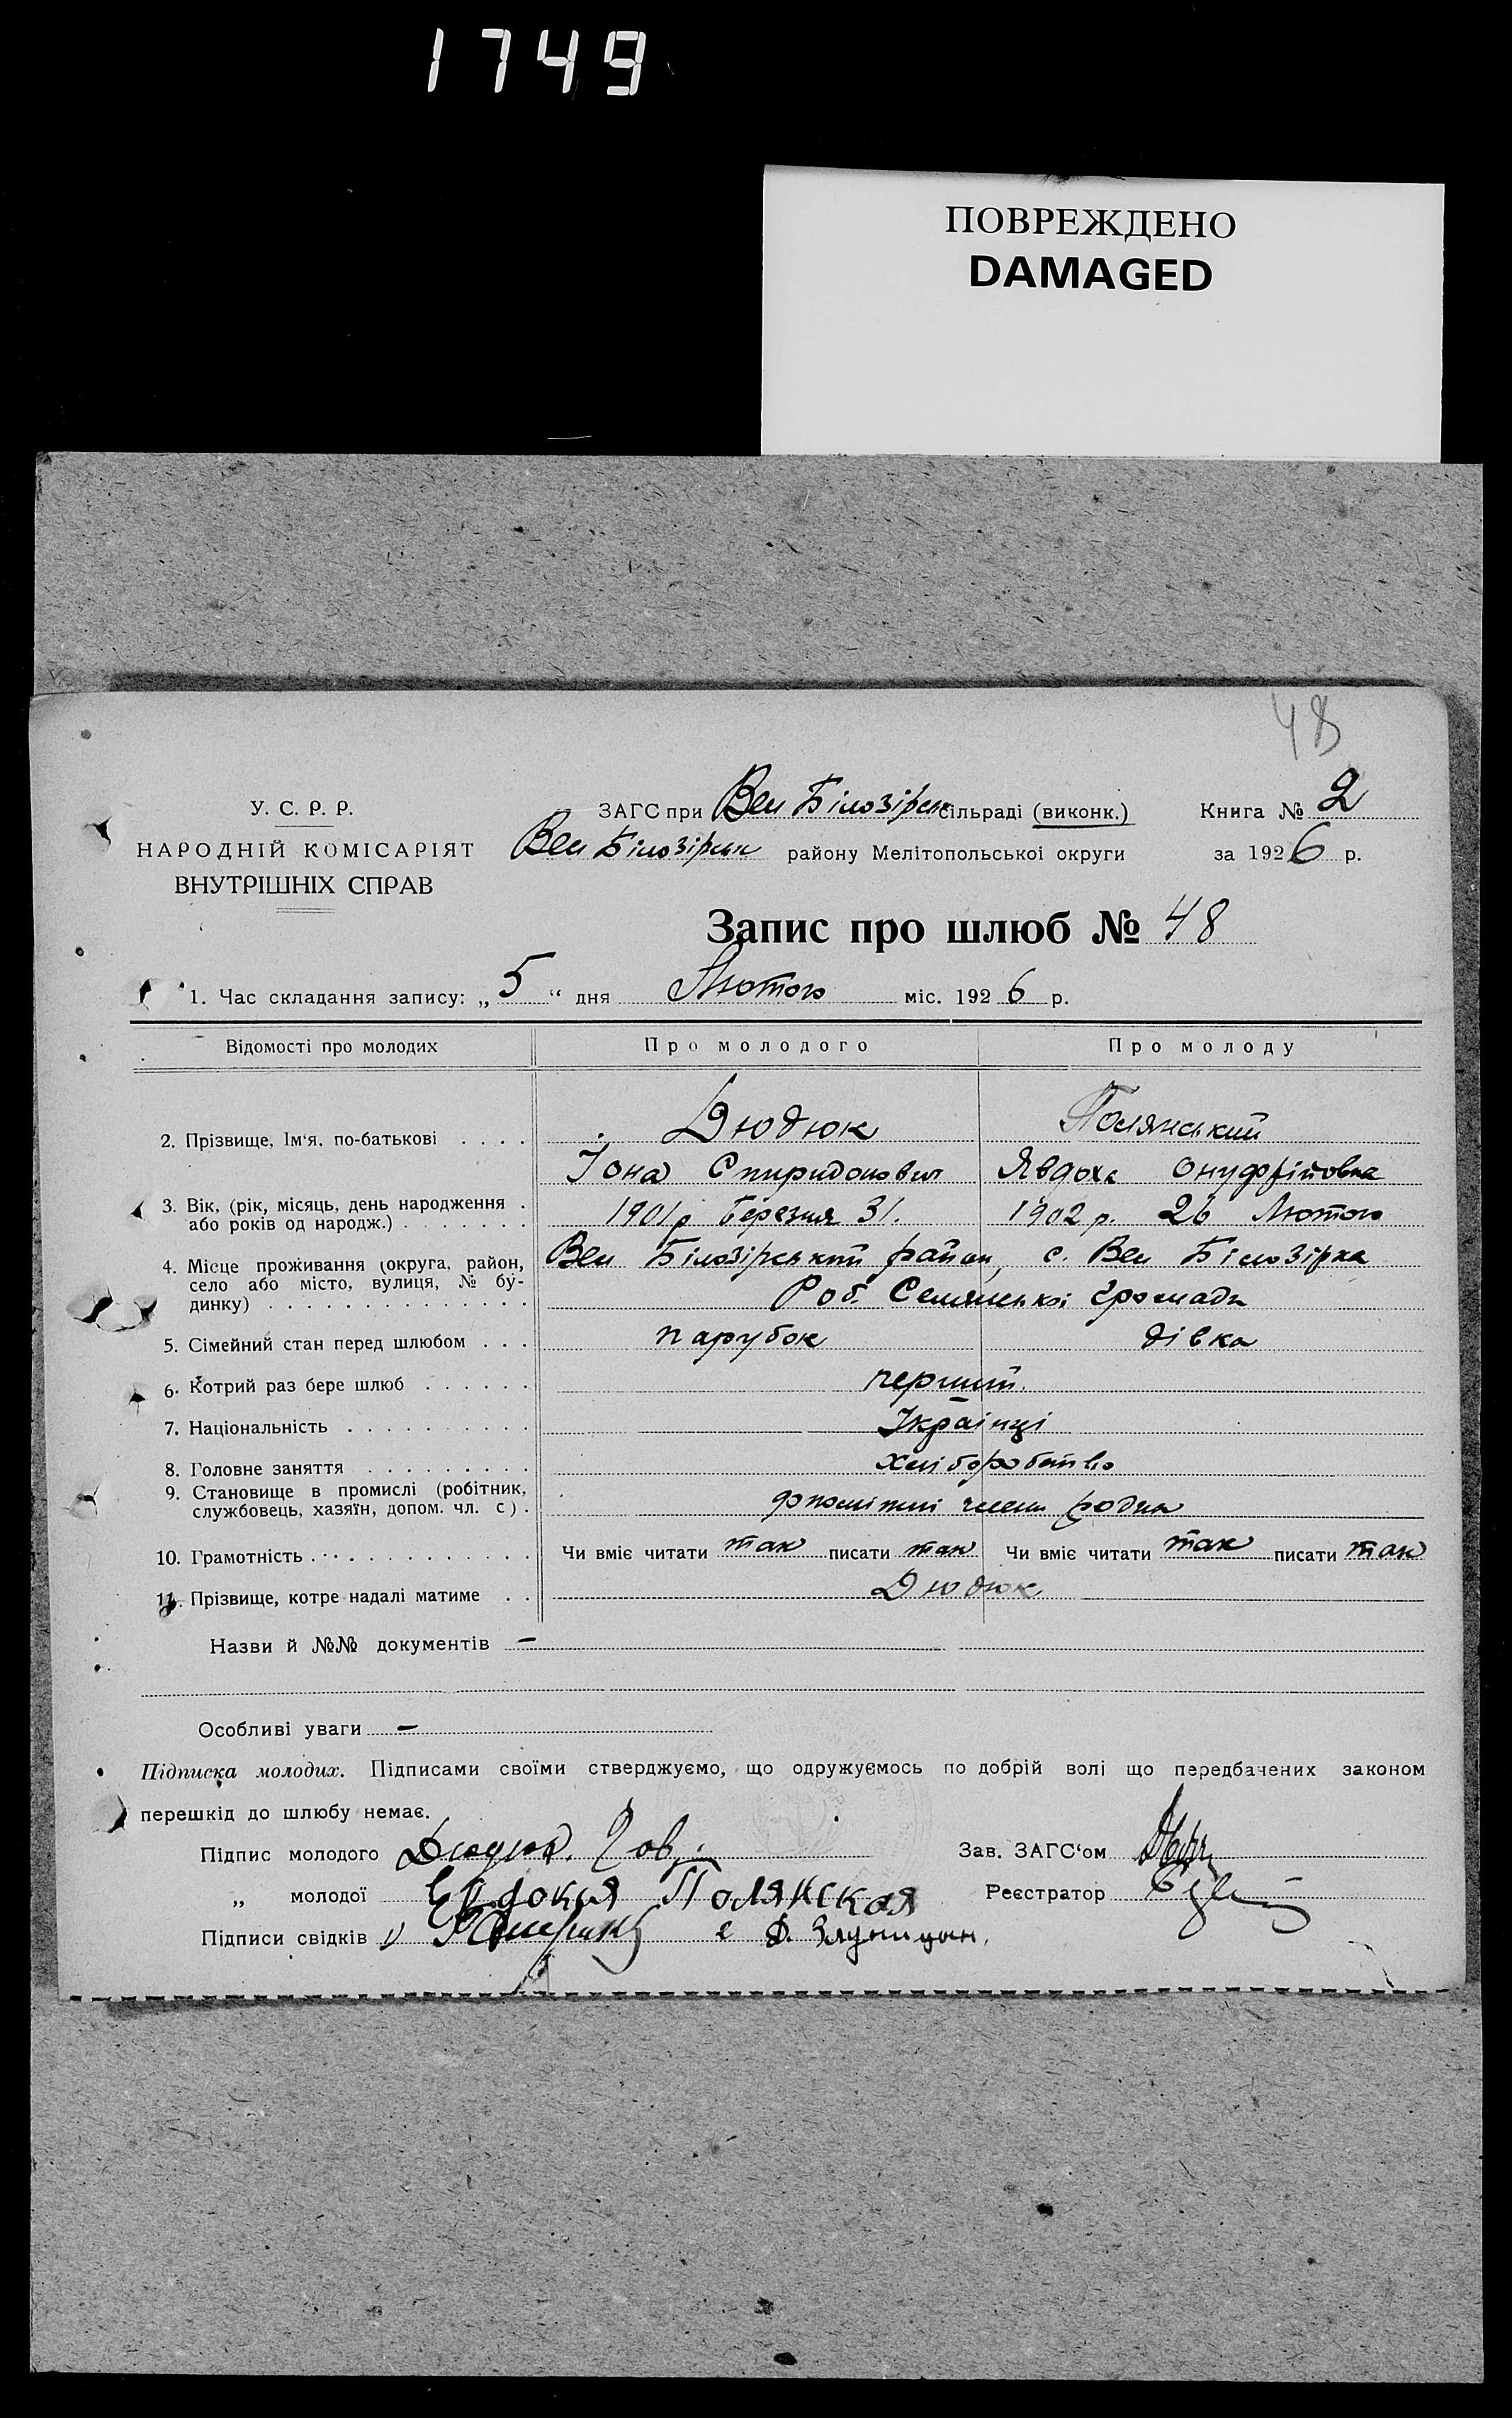 1749
ПОВРЕЖДЕНО
DAMAGED
48
У. С. Р. Р.
НАРОДНІЙ КОМІСАРІЯТ
ВНУТРІШНІХ СПРАВ
ЗАГС при Вел Білозірськ сільраді (виконк.)
Вел Білозірськ району Мелітопольської округи
Книга № 2
за 1926 р.
Запис про шлюб № 48
1. Час складання запису: „5“ дня Лютого міс. 1926 р.
Відомості про молодих Про молодого Про молоду
2. Прізвище, Ім‘я. по-батькові . . . . Дюдюк Полянський
Іона Спиридонович Явдоха Онуфріївна
3. Вік, (рік, місяць, день народження . або років од народж.) . . . . . . . 1901 р Березня 31. 1902 р. 26 Лютого
4. Місце проживання (округа, район, Вел Білозірський район, с. Вел Білозірка
село або місто, вулиця, № бу-
динку) . . . . . . . . . . . . . . Роб. громади
5. Сімейний стан перед шлюбом . . . парубок дівка
6. Котрий раз бере шлюб . . . . . . перший.
7. Національність . . . . . . . . . . Українці
8. Головне заняття . . . . . . . . . Хліборобство
9. Становище в промислі (робітник,
службовець, хазяїн, допом. чл. с) . допоміжні члени родин
10. Грамотність . . . . . . . . . . . . . Чи вміє читати так писати так Чи вміє читати так писати так
11. Прізвище, котре надалі матиме . . Дюдюк
Назви й №№ документів —
Особливі уваги —
Підписка молодих. Підписами своїми стверджуємо, що одружуємось по добрій волі що передбачених законом
перешкід до шлюбу немає.
Підпис молодого Дюдюк. Зав. ЗАГС‘ом
„ молодої Евдокия Полянская Реєстратор
Підписи свідків